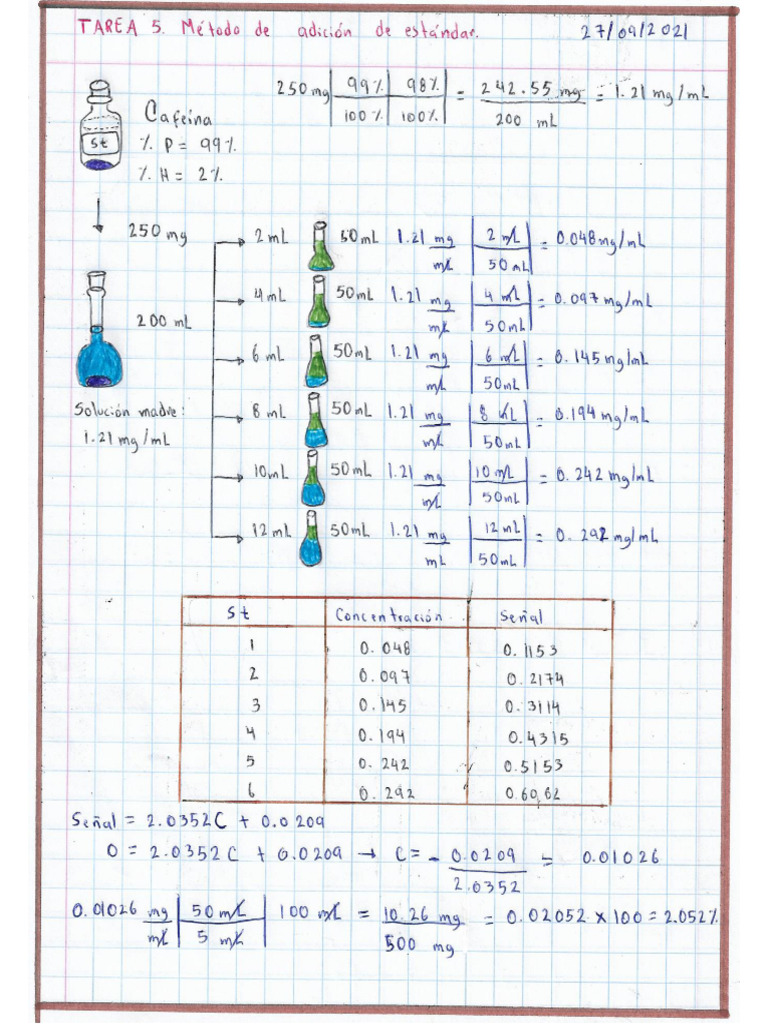 TAREA 5. Método de adición de estándar. 27/09/2021
250 mg | 99% | 98% | = 242.55 mg = 1.21 mg/mL
100% | 100% | 200 mL
Cafeína
St
% P = 99%
% H = 2%
250 mg
200 mL
Solución madre:
1.21 mg/mL
2 mL 50 mL 1.21 mg/mL | 2 mL / 50 mL | = 0.048 mg/mL
4 mL 50 mL 1.21 mg/mL | 4 mL / 50 mL | = 0.097 mg/mL
6 mL 50 mL 1.21 mg/mL | 6 mL / 50 mL | = 0.145 mg/mL
8 mL 50 mL 1.21 mg/mL | 8 mL / 50 mL | = 0.194 mg/mL
10 mL 50 mL 1.21 mg/mL | 10 mL / 50 mL | = 0.242 mg/mL
12 mL 50 mL 1.21 mg/mL | 12 mL / 50 mL | = 0.292 mg/mL
St Concentración Señal
1 0.048 0.1153
2 0.097 0.2174
3 0.145 0.3114
4 0.194 0.4315
5 0.242 0.5153
6 0.292 0.6062
Señal = 2.0352C + 0.0209
0 = 2.0352C + 0.0209 → C = - 0.0209 / 2.0352 = 0.01026
0.01026 mg/mL | 50 mL / 5 mL | 100 mL = 10.26 mg / 500 mg = 0.02052 x 100 = 2.052%